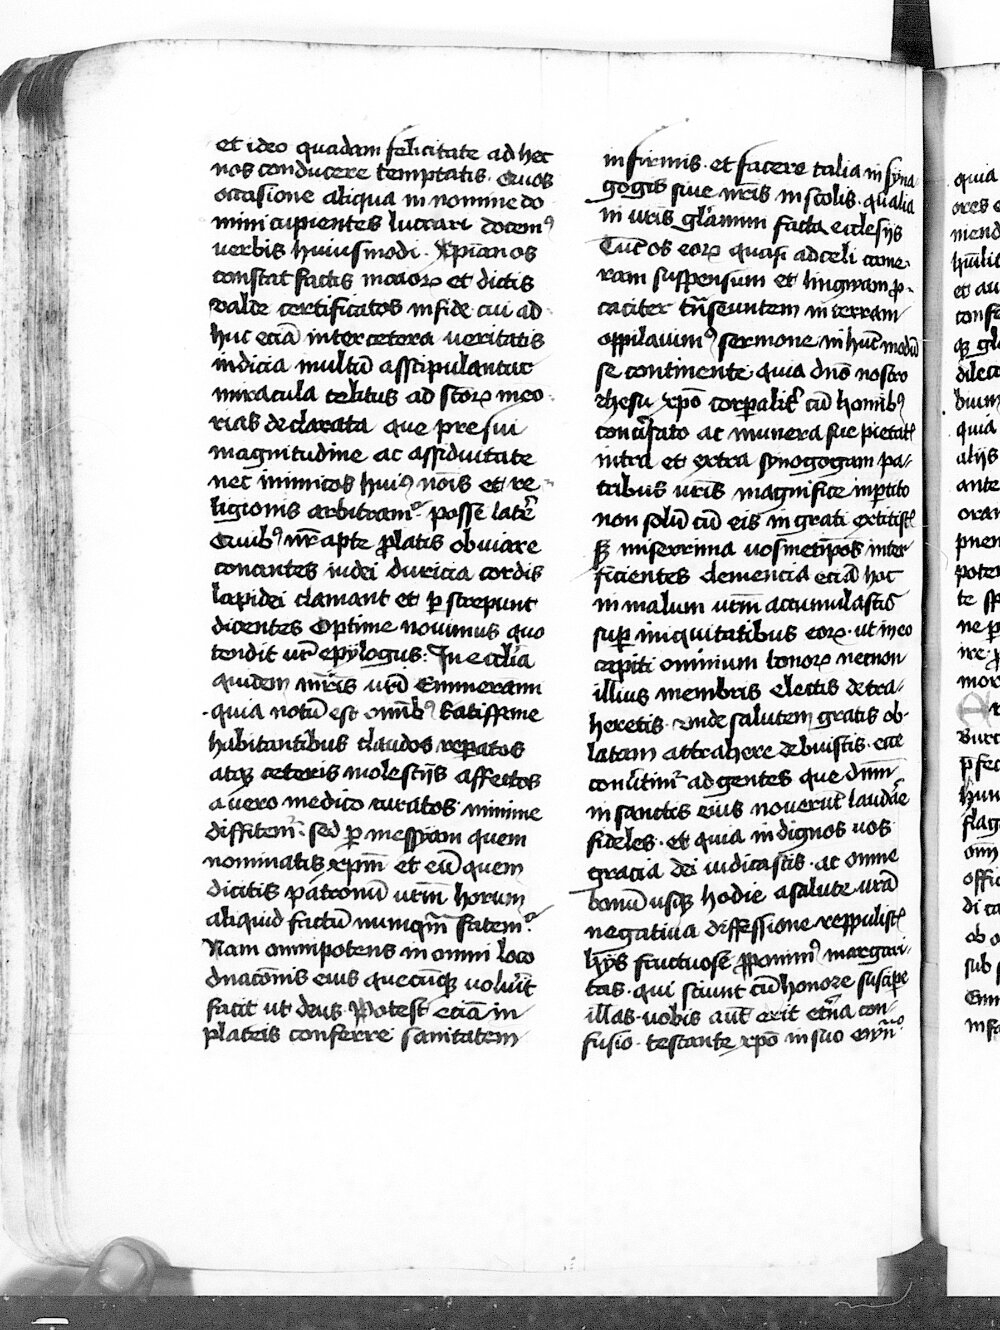 et ideo quadam felicitate ad hec
nos conducere temptatis. Quos
occasione aliqua in nomine do
mini cupientes lucrari docemꝰ
verbis huiusmodi. Xp̄ianos
constat factis maioꝝ et dictis
valde certificatos in fide cui ad
huc eciā inter cetera veritatis
indicia multū asstipulantur
miracula celitus ad scōꝝ meo
rias declarata que pre sui
magnitudine ac assiduitate
nec inimicos huiꝰ nōis et re
ligionis arbitramᷣ posse latēr
Quibꝰ nr̄ apte ꝓlatis obuiare
conantes iudei duricia cordis
lapidei clamant et ꝑstrepunt
dicentes Optime nouimus quo
tendit vr̄ epylogus. In eccl̄ia
quidem mr̄is vr̄i Emmerami
quia notū est omībꝰ Ratispone
habitantibus claudos reꝑatos
atqꝫ ceteris molestijs affectos
a vero medico curatos minime
diffitemᷣ. sed ꝑ messyam quem
nominatis xp̄m et eū quem
dicitis patronū vr̄m horum
aliquid factū numqm̄ fatemᷣ.
Nam omnipotens in omni loco
dn̄acōnis eius quecūqꝫ voluīt
facit vt deus. Potest eciā in
plateis conferre sanitatem
infirmis. et facere talia in syna
gogis siue nr̄is in scolis. qualia
in vr̄is gl̄iamini facta ecclesijs
Tūc os eoꝝ quasi ad celi came
ram suspensum et lingwam ꝓ
caciter tn̄seuntem in terram
oppilauimꝰ sermone in hūc modū
se continente. quia dn̄o nostro
Jhesu xpō corꝑalit̄ cū homībꝰ
conūsato ac munera sue pietatꝭ
intra et extra synogogam pa
tribus vr̄is magnifice inꝑtito
non solū cū eis ingrati extitistꝭ
sꝫ miserrima vosmetip̄os inter
ficientes clemencia eciā hoc
in malum vr̄m accumulastis
suꝑ iniquitatibus eoꝝ. vt in eo
capiti ominium bonoꝝ necnon
illius membris electis detra
heretis. vnde salutem gratis ob
latam attrahere debuistis. ecce
conūtimᷣ ad gentes que dn̄m
in sanctis eius nouerūt laudāe
fideles. et quia indignos vos
gracia dei iudicastis. ac omne
bonū usqꝫ hodie a salute vr̄a
negatiua diffessione reppulistꝭ
hijs fructuose ꝓponimꝰ margari
tas. qui sciunt cū honore suscipe
illas. vobis aūt erit et̄na con
fusio. testante xpō in suo